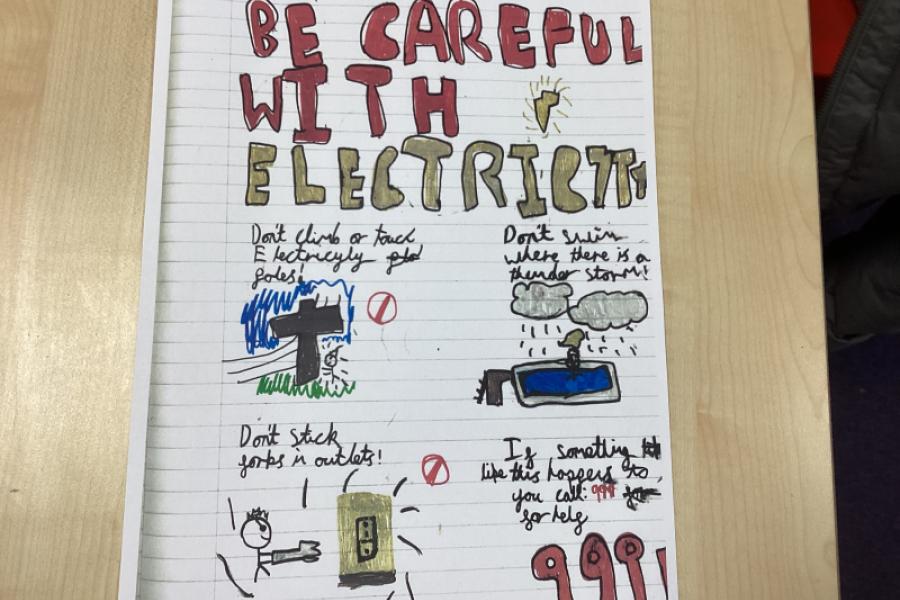 BE CAREFUL
WITH
ELECTRICITY
Don't climb or touch
Electricyly
poles!
Don't swim
where there is a
thunder storm!
Don't stick
forks in outlets!
If something
like this happens to
you call: 999
for help
999!